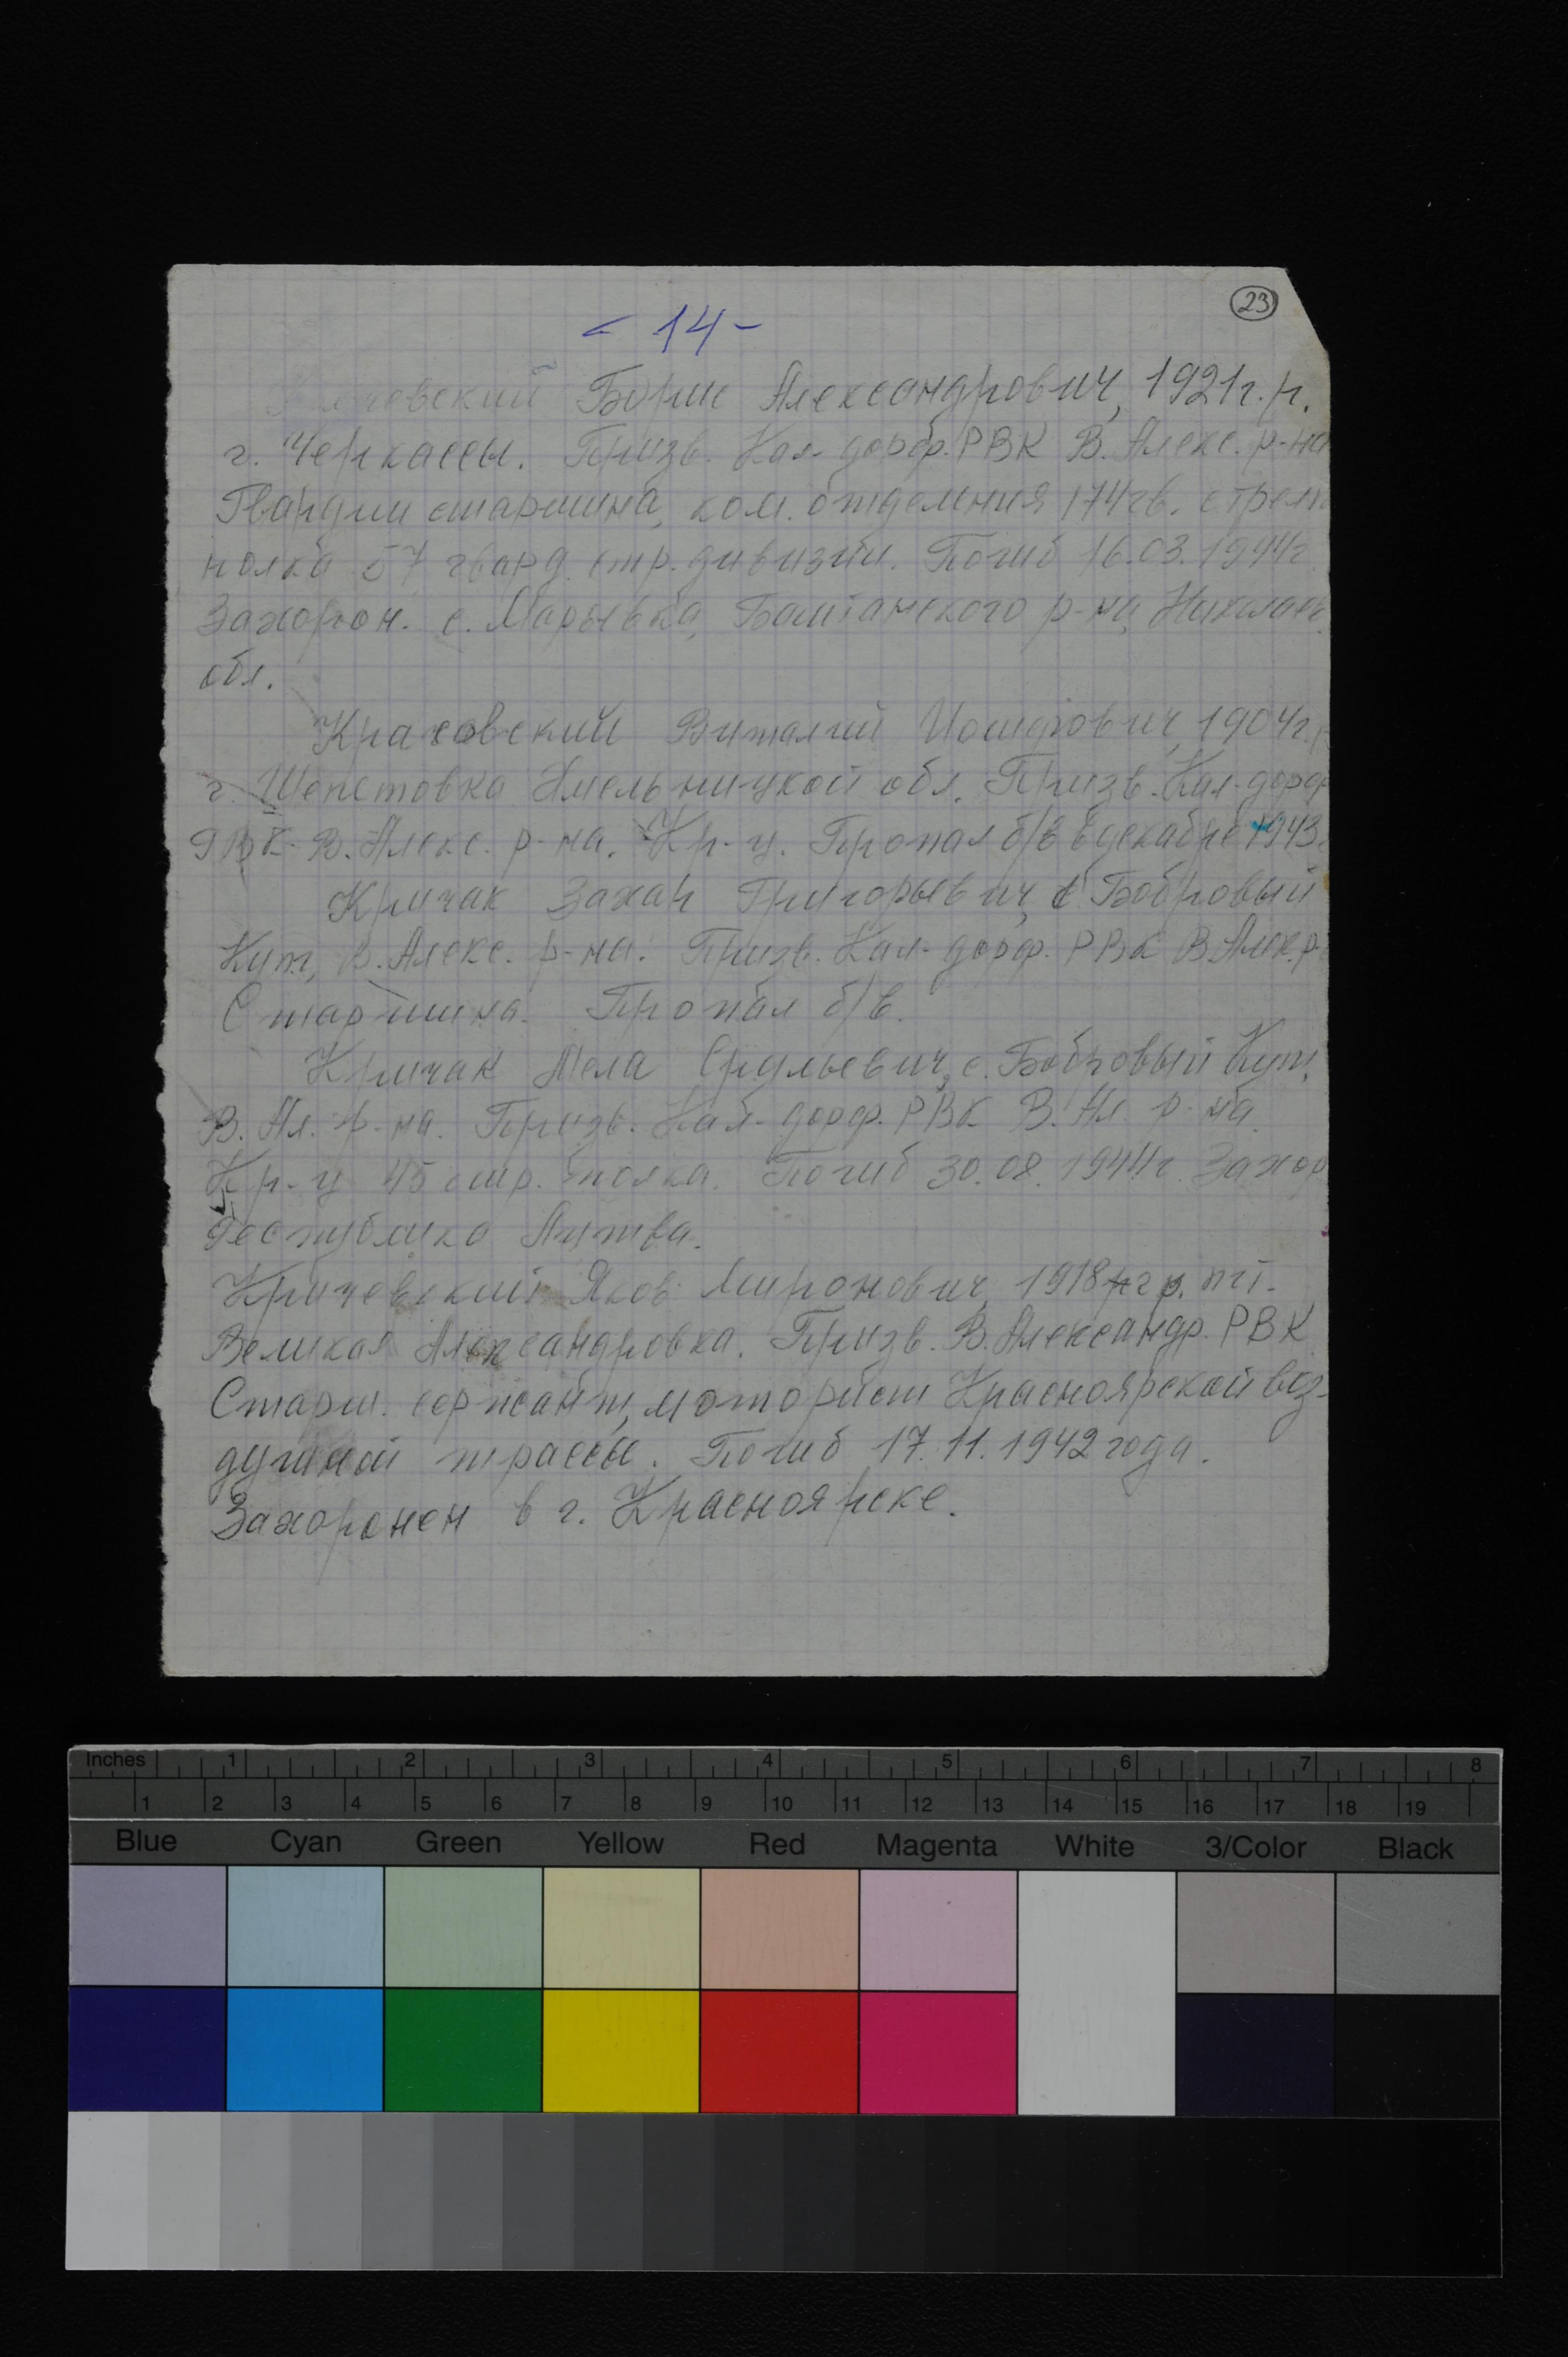 23
- 14 -
Борис Александрович, 1921г.р.
г. Черкассы. Призв. Кал-дорф. РВК В. Алекс. р-на
Гвардии старшина, ком. отделения 174 гв. стрел
полка 57 гвард. стр. дивизии. Погиб 16.03.1944г.
Захорон. с. Марьевка, Баштанского р-на, Николаев.
обл.
Красовский Виталий Иосифович, 1904г.
г. Шепетовка Хмельницкой обл. Призв. Кал-дорф
РВК В. Алекс. р-на. Кр-ц. Пропал б/в в декабре 1943.
Кричак Захар Григорьевич, с. Бобровый
Кут, В. Алекс. р-на. Призв. Кал-дорф. РВК В. Алек. р
Старшина. Пропал б/в.
Кричак Мела Срульевич, с. Бобровый Кут,
В. Ал. р-на. Призв. Кал-дорф. РВК В. Ал. р-на.
Кр-ц 45 стр. полка. Погиб 30.08.1944г. Захор
Республика Литва.
Кричевский Яков Миронович, 1918 г р. пгт.
Великая Александровка. Призв. В. Александр. РВК
Старш. сержант, моторист Красноярской воз-
душной трассы. Погиб 17.11.1942 года.
Захоронен в г. Красноярске.
Inches 1 2 3 4 5 6 7 8
1 2 3 4 5 6 7 8 9 10 11 12 13 14 15 16 17 18 19
Blue Cyan Green Yellow Red Magenta White 3/Color Black